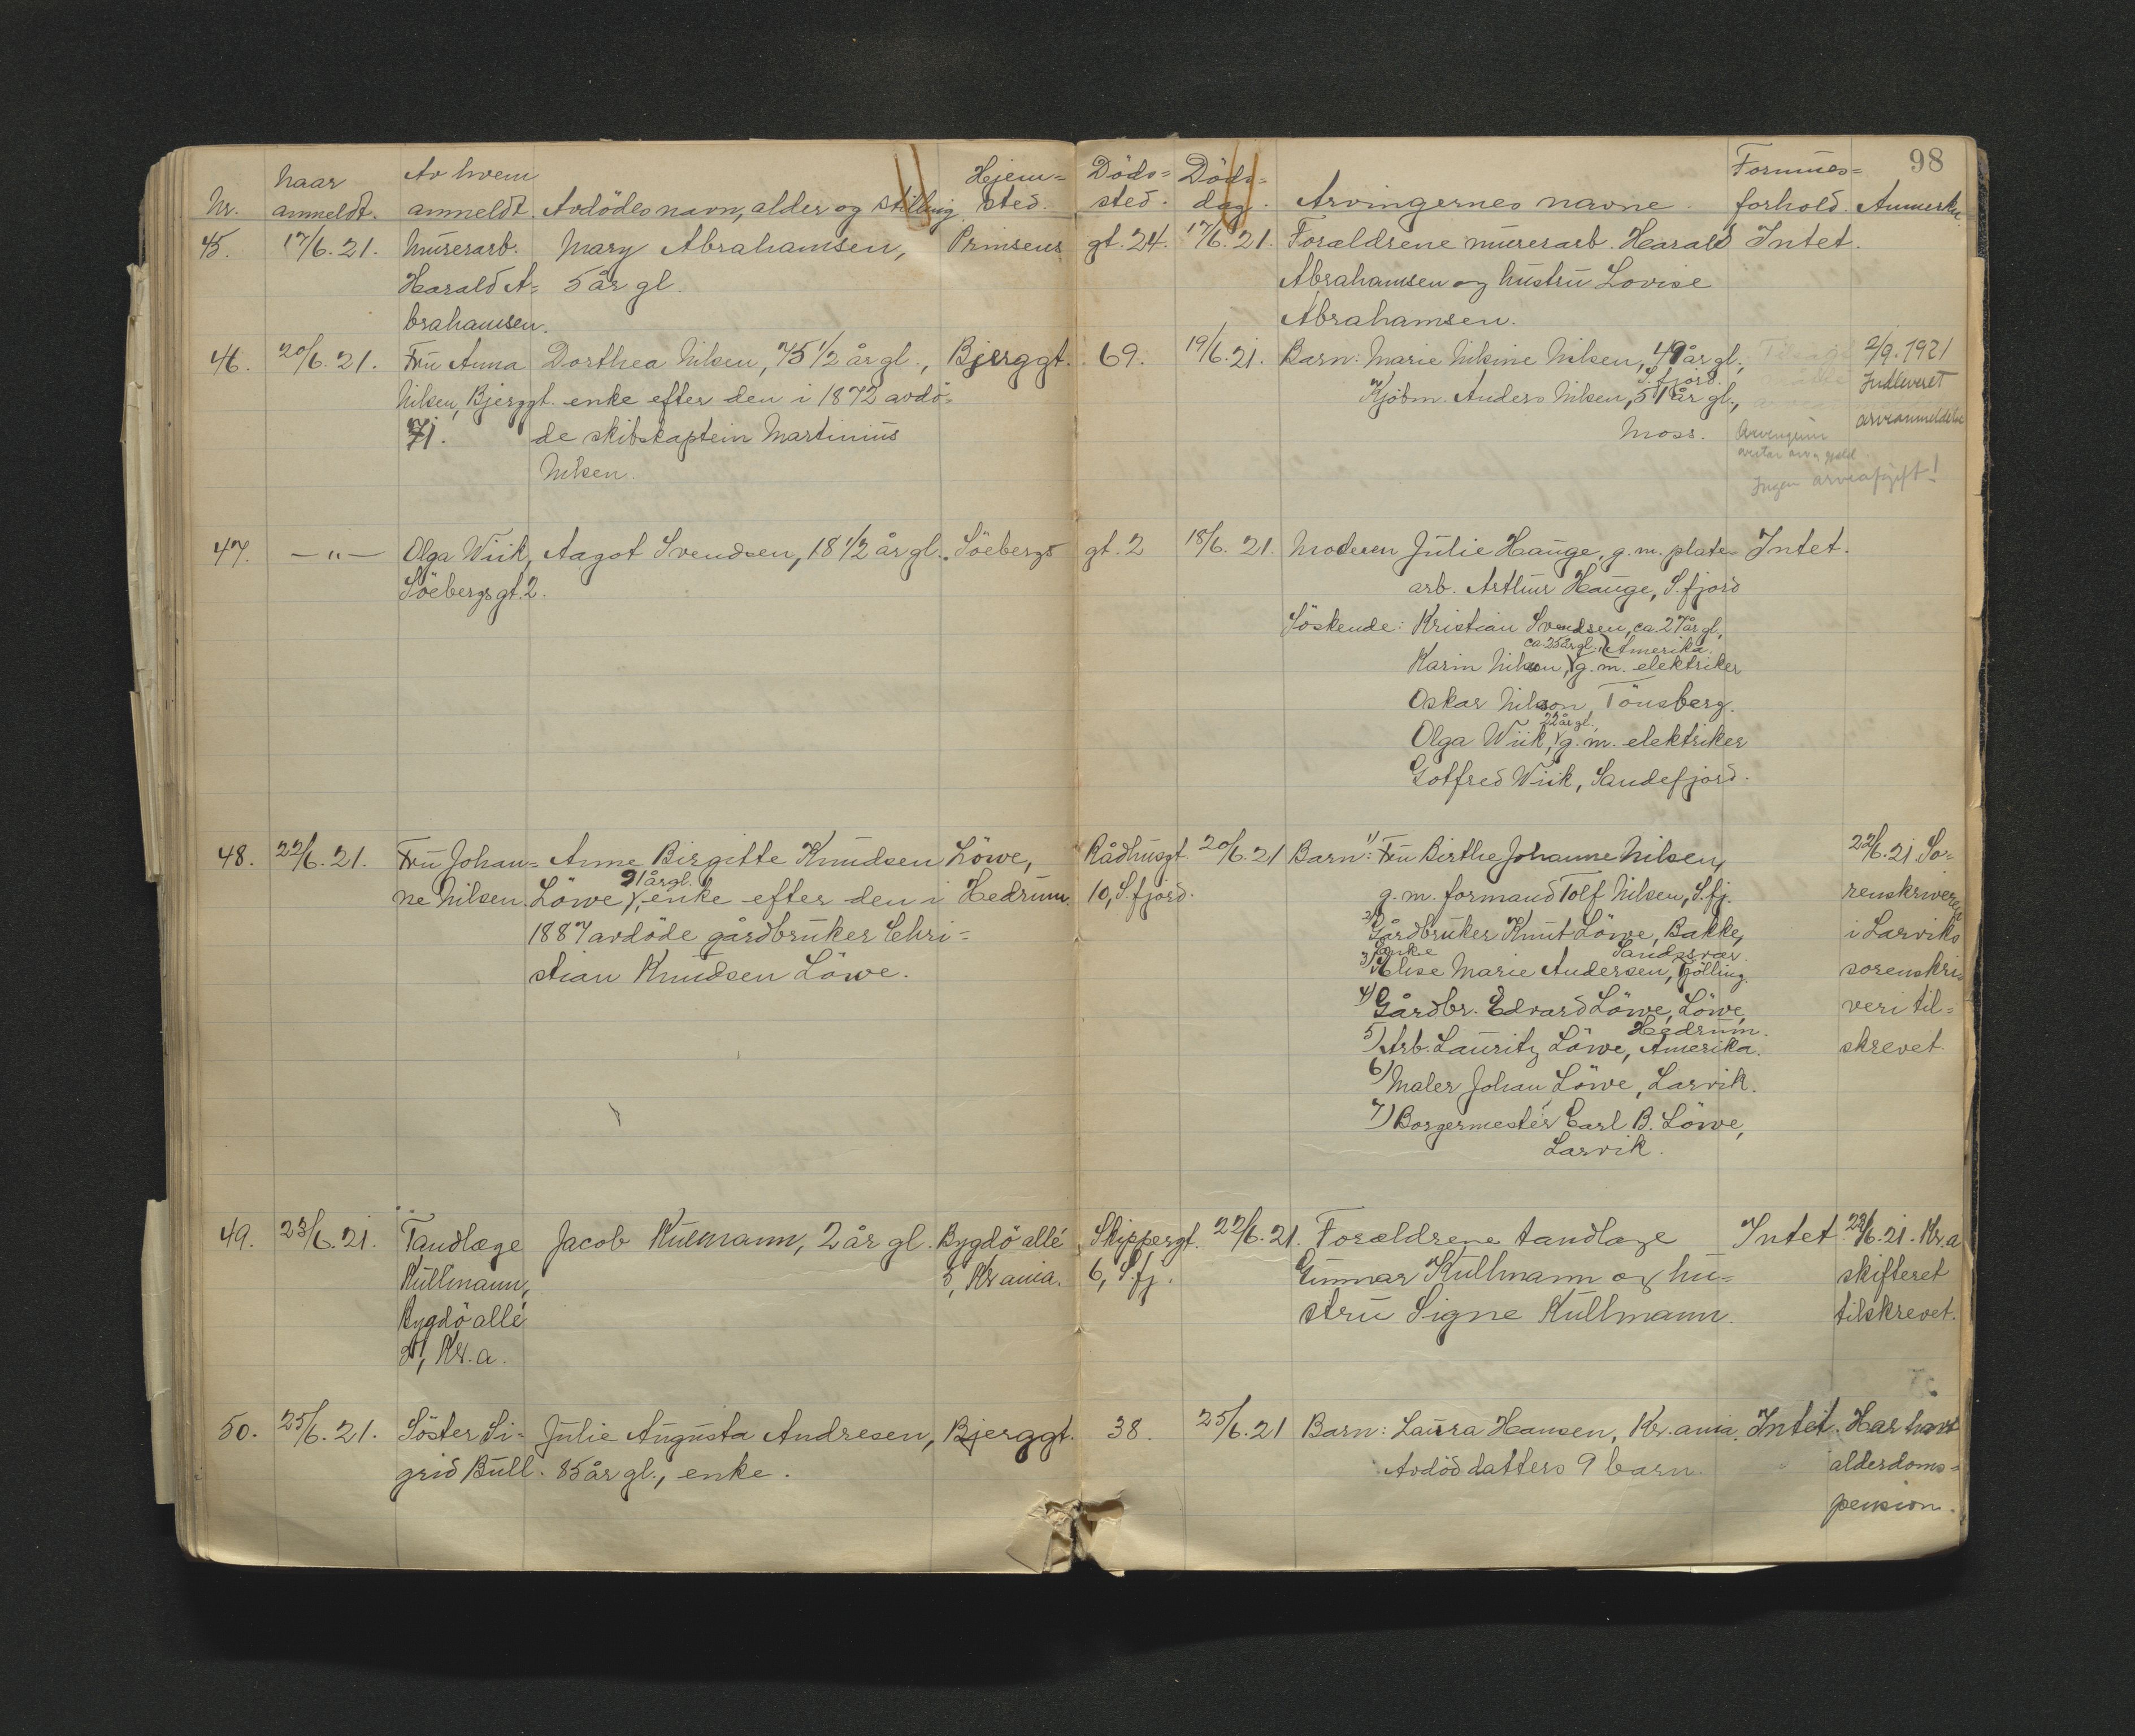 98
Nr. | Naar anmeldt. | Av hvem anmeldt | Avdödes navn, alder og stilling. | Hjem= sted. | Döds= sted. | Döds= dag. | Arvingernes navne. | Formues= forhold. | Anmerkn.
45. 17/6.21. Murerarb. Mary Abrahamsen, Prinsens gt. 24. 17/6.21. Forældrene murerarb. Harald Intet.
Harald A= 5 år gl. Abrahamsen og hustru Lovise
brahamsen. Abrahamsen.
46. 20/6.21. Fru Anna Dorthea Nilsen, 75 1/2 år gl., Bjerggt. 69. 19/6.21. Barn: Marie Nikine Nilsen, 49 år gl., 2/9.1921
S.fjord. Indleveret
Nilsen, Bjerggt. enke efter den i 1872 avdö= Kjöbm. Anders Nilsen, 51 år gl., arveanmeldelse
71. de skibskaptein Martinius Moss. Arvingerne
Nilsen. overtar arv og gjeld
Ingen arveafgift!
47. —"— Olga Wiik, Aagot Svendsen, 18 1/2 år gl. Söebergs gt. 2 18/6.21. Moderen Julie Hauge, g.m. plate Intet.
Söebergsgt. 2. arb. Arthur Hauge, S.fjord
Söskende: Kristian Svendsen, ca. 27 år gl.,
ca. 25 år gl. Amerika.
Karin Nilson, g.m. elektriker
Oskar Nilson, Tönsberg.
22 år gl.
Olga Wiik, g.m. elektriker
Gotfred Wiik, Sandefjord.
48. 22/6.21. Fru Johan= Anne Birgitte Knudsen Löwe, Rådhusgt. 20/6.21 Barn: 1) Fru Birthe Johanne Nilsen, 22/6.21 So=
91 år gl.
ne Nilsen. Löwe, enke efter den i Hedrum. 10, S.fjord. g.m. formand Tolf Nilsen, S.fj. renskriveren
1887 avdöde gårdbruker Chri= 2) Gårdbruker Knut Löwe, Bakke, i Larviks
Sandsvær.
stian Knudsen Löwe. 3) Enke Elise Marie Andersen, Tjölling. sorenskri
4) Gårdbr. Edvard Löwe, Löwe, veri til=
Hedrum.
5) Arb. Lauritz Löwe, Amerika. skrevet.
6) Maler Johan Löwe, Larvik.
7) Borgermester Carl B. Löwe,
Larvik.
49. 23/6.21. Tandlæge Jacob Kullmann, 2 år gl. Bygdö allé Skippergt. 22/6.21. Forældrene tandlæge Intet. 22/6.21. Kr.a
Kullmann, 5, Kr.ania. 6, S.fj. Gunnar Kullmann og hu= skifteret
Bygdö allé stru Signe Kullmann. tilskrevet.
, Kr.a.
50. 25/6.21. Söster Si= Julie Augusta Andresen, Bjerggt. 38. 25/6.21 Barn: Laura Hansen, Kr.ania. Intet. Har havt
grid Bull. 85 år gl., enke. Avdöd datters 9 barn. alderdoms=
pension.